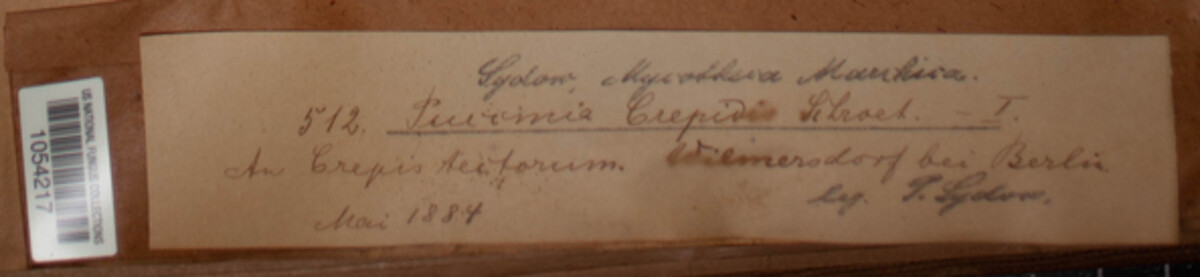 Sydow, Mycotheca Marchica.
512. Puccinia Crepidis Schroet. — I.
An Crepis tectorum. Wilmersdorf bei Berlin
leg. P. Sydow.
Mai 1884
US NATIONAL FUNGUS COLLECTIONS
1054217